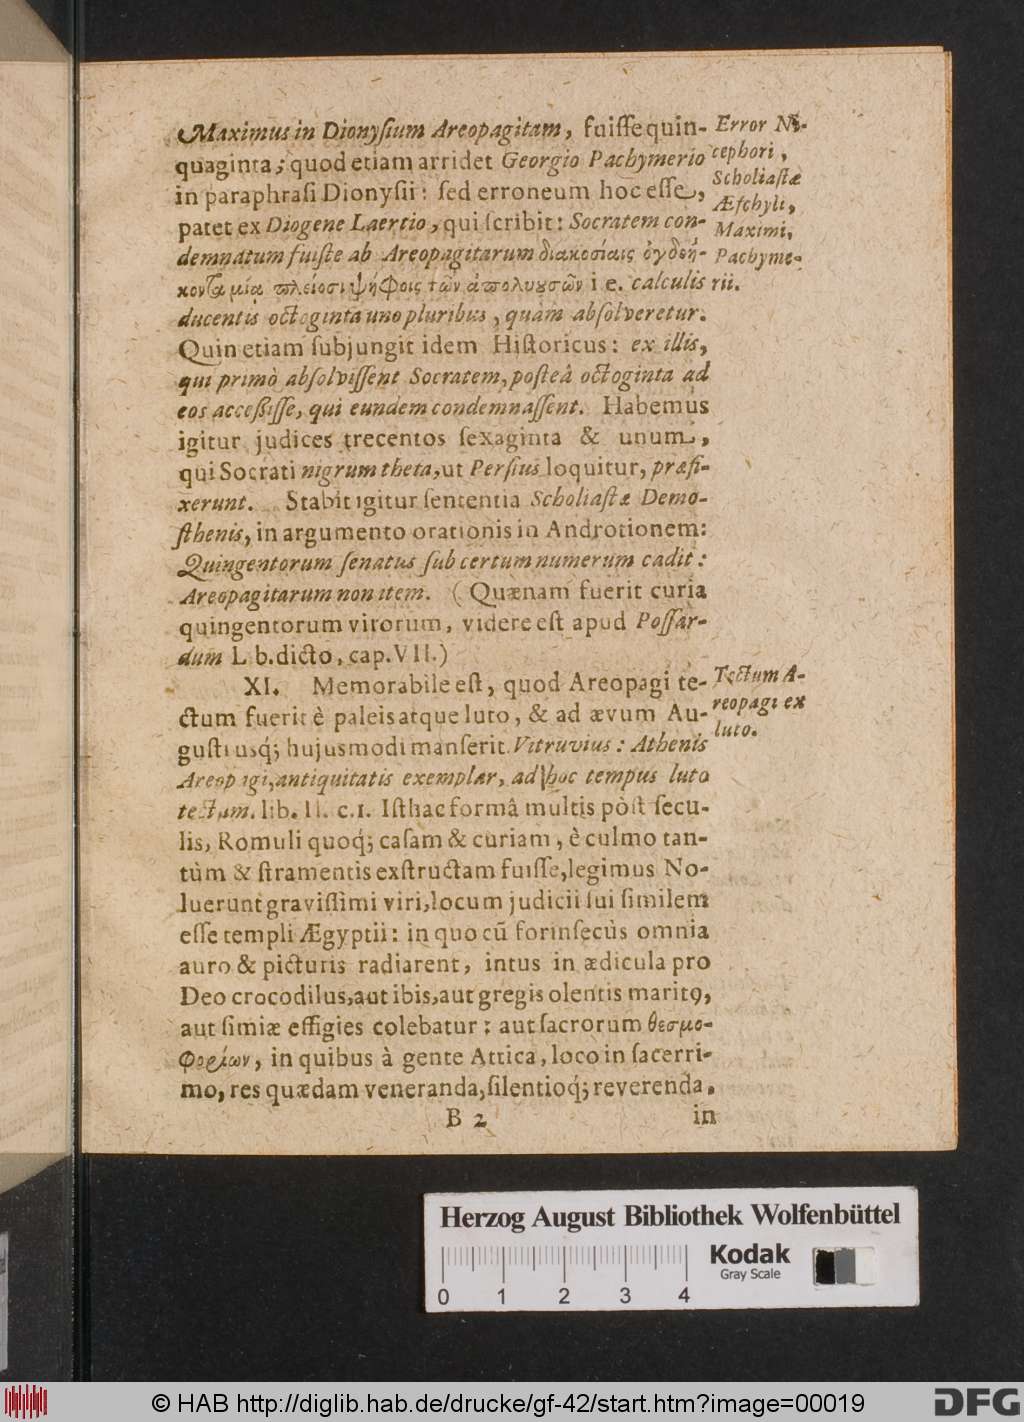 Maximus in Dionyſium Areopagitam, fuiſſe quin-
quaginta; quod etiam arridet Georgio Pachymerio
in paraphraſi Dionyſii: ſed erroneum hoc eſſe,
patet ex Diogene Laertio, qui ſcribit: Socratem con-
demnatum fuiſſe ab Areopagitarum διακοσίαις ὀγδοή-
κοντα μία πλείοσι ψήφοις τῶν ἀπολυουσῶν i e. calculis
ducentis octoginta uno pluribus, quàm abſolveretur.
Quin etiam ſubjungit idem Hiſtoricus: ex illis,
qui primò abſolviſſent Socratem, poſteâ octoginta ad
eos acceſſiſſe, qui eundem condemnaſſent. Habemus
igitur judices trecentos ſexaginta & unum,
qui Socrati nigrum theta, ut Perſius loquitur, præfi-
xerunt. Stabit igitur ſententia Scholiaſtæ Demo-
ſthenis, in argumento orationis in Androtionem:
Quingentorum ſenatus ſub certum numerum cadit:
Areopagitarum non item. (Quænam fuerit curia
quingentorum virorum, videre eſt apud Poſſar-
dum L b. dicto, cap. VII.)
XI. Memorabile eſt, quod Areopagi te-
ctum fuerit è paleis atque luto, & ad ævum Au-
guſti usq; hujusmodi manſerit. Vitruvius: Athenis
Areop igi, antiquitatis exemplar, ad hoc tempus luto
tectum. lib. II. c. 1. Iſthac formâ multis pòſt ſecu-
lis, Romuli quoq́; caſam & curiam, è culmo tan-
tùm & ſtramentis exſtructam fuiſſe, legimus No-
luerunt graviſſimi viri, locum judicii ſui ſimilem
eſſe templi Ægyptii: in quo cũ forinſecùs omnia
auro & picturis radiarent, intus in ædicula pro
Deo crocodilus, aut ibis, aut gregis olentis maritꝰ,
aut ſimiæ effigies colebatur: aut ſacrorum θεσμο-
φορίων, in quibus à gente Attica, loco in ſacerri-
mo, res quædam veneranda, ſilentioq́; reverenda,
B 2 in
Error Ni-
cephori,
Scholiaſtæ
Æſchyli,
Maximi,
Pachyme-
rii.
Tectum A-
reopagi ex
luto.
Herzog August Bibliothek Wolfenbüttel
Kodak
Gray Scale
0 1 2 3 4
© HAB http://diglib.hab.de/drucke/gf-42/start.htm?image=00019
DFG